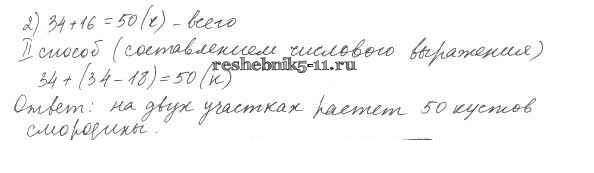 2) 34+16=50(к) - всего
II способ (составлением числового выражения)
reshebnik5-11.ru
34+(34-18)=50(к)
Ответ: на двух участках растет 50 кустов
смородины.